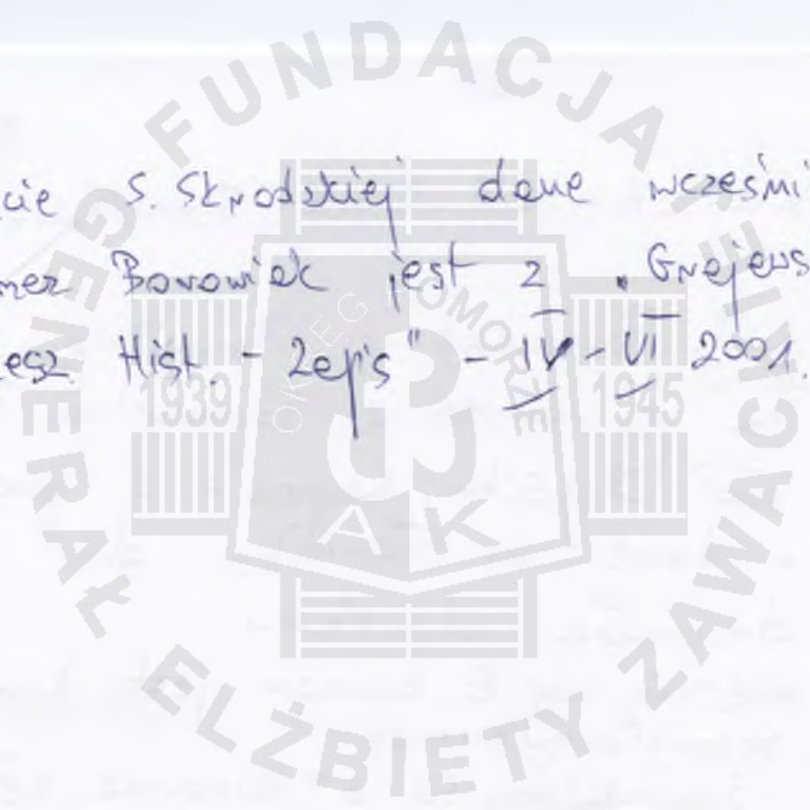 cie S. Skrodzkiej dane wcześni
mer Borowiak jest z „Grajews
esz. Hist. - Zap's" - IV - VI 2001.
FUNDACJA GENERAŁ ELŻBIETY ZAWACKIEJ
OKRĘG POMORZE
1939 1945
AK